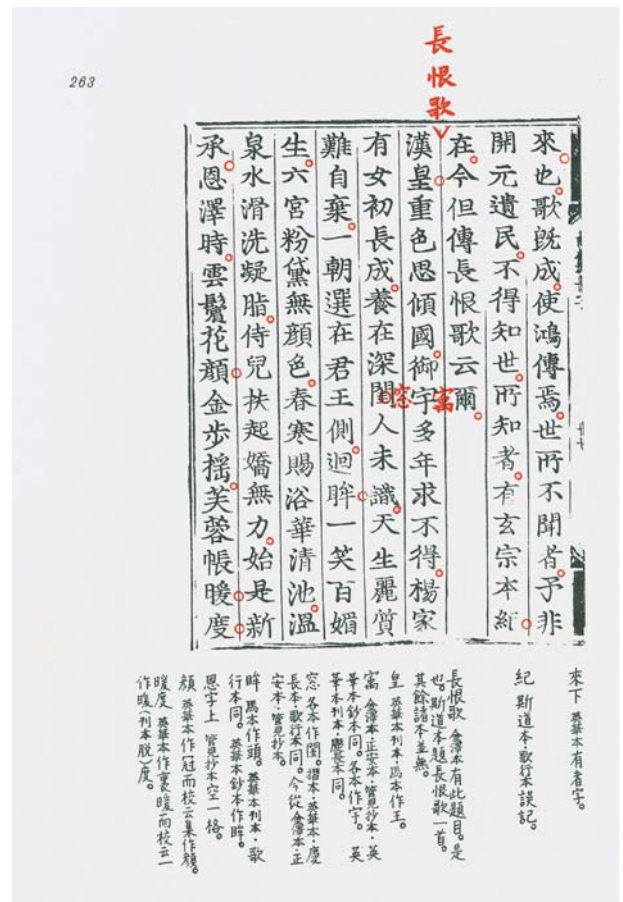 263
長恨歌
來也歌既成使鴻傳焉世所不聞者予非
開元遺民不得知世所知者有玄宗本紀
在今但傳長恨歌云爾
漢皇重色思傾國御宇多年求不得楊家
寓
有女初長成養在深閨人未識天生麗質
窓
難自棄一朝選在君王側迴眸一笑百媚
生六宮粉黛無顏色春寒賜浴華清池溫
泉水滑洗凝脂侍兒扶起嬌無力始是新
承恩澤時雲鬢花顏金步搖芙蓉帳暖度
來下 英華本有者字。
紀 斯道本·歌行本誤記。
長恨歌 金澤本有此題目。是
也。斯道本題長恨歌一首。
其餘諸本並無。
皇 英華本刊本·馬本作王。
寓 金澤本·正安本·管見抄本·英
華本鈔本同。各本作宇。英
華本刊本·慶長本同。
窓 各本作閨。摺本·英華本·慶
長本·歌行本同。今從金澤本·正
安本·管見抄本。
眸 馬本作頭。英華本刊本·歌
行本同。英華本鈔本作眸。
恩字上 管見抄本空一格。
顏 英華本作冠而校云集作顏。
暖度 英華本作裏暖而校云一
作暖(刊本脫)度。